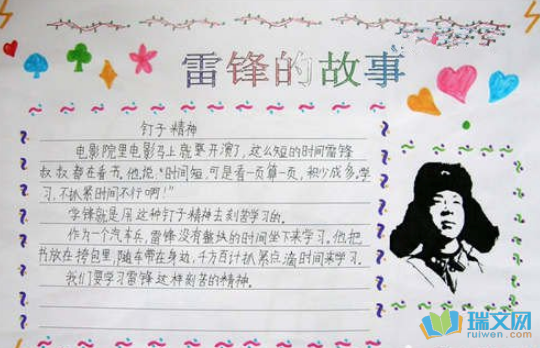 雷锋的故事
钉子精神
电影院里电影马上就要开演了,这么短的时间雷锋
叔叔都在看书。他说:"时间短,可是看一页算一页,积少成多。学
习,不抓紧时间不行啊!"
学锋就是用这种钉子精神去刻苦学习的。
作为一个汽车兵,雷锋没有整块的时间坐下来学习。他把
书放在挎包里,随车带在身边,千方百计抓紧点滴时间来学习。
我们要学习雷锋这样刻苦的精神。
瑞文网
ruiwen.com